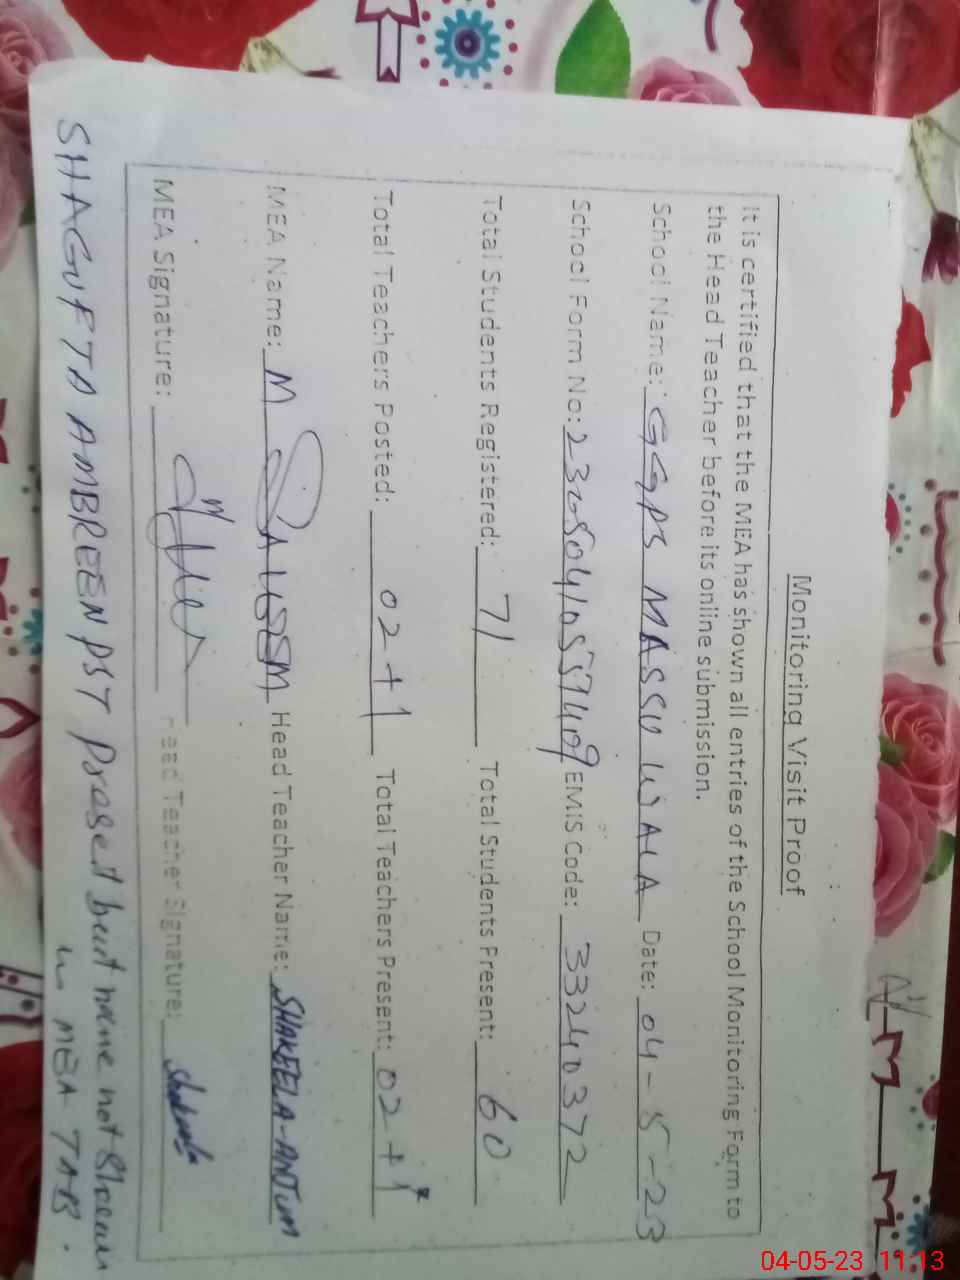 Monitoring Visit Proof
It is certified that the MEA has shown all entries of the School Monitoring Form to
the Head Teacher before its online submission.
School Name: GGPS MASSU WALA Date: 04-5-23
School Form No: EMIS Code: 33240372
Total Students Registered: 71 Total Students Present: 60
Total Teachers Posted: 02+1 Total Teachers Present: 02+1*
MEA Name: M Head Teacher Name: SHAKEELA-ANJUM
MEA Signature: Head Teacher Signature: Shakeela
SHAGUFTA AMBREEN PST name not
in MEA TAB.
04-05-23 11:13